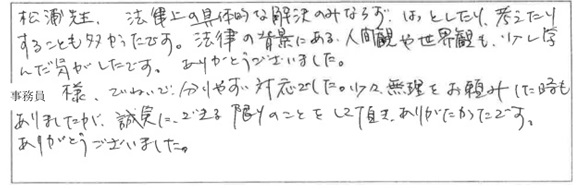 松浦先生、法律上の具体的な解決のみならず、はっとしたり、考えたり
することも多かったです。法律の背景にある人間観や世界観も、少し学
んだ気がしたです。ありがとうございました。
事務員 様、ていねいで、分りやすい対応でした。少々無理をお頼みした時も
ありましたが、誠実に、できる限りのことをして頂き、ありがたかったです。
ありがとうございました。